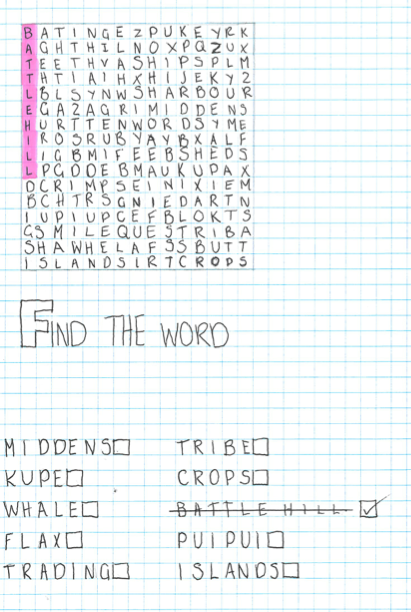 B A T I N G E Z P U K E Y R K
A G H T H I L N O X P Q Z U X
T E E T H V A S H I P S P L M
T H T I A I H X H I J E K Y Z
L B L S Y N W S H A R B O U R
E G A Z A G R I M I D D E N S
H U R T T E N W O R D S Y M E
I R O S R U B Y A Y B X A L F
L I G B M I F E E B S H E D S
L P G D O E B M A U K U P A X
D C R I M P S E I N I X I E M
B C H T R S G N I E D A R T N
I U P I U P C E F B L O K T S
G S M I L E Q U E S T R I B A
S H A W H E L A F S S B U T T
I S L A N D S I R T C R O P S
FIND THE WORD
MIDDENS TRIBE
KUPE CROPS
WHALE BATTLE HILL
FLAX PUIPUI
TRADING ISLANDS